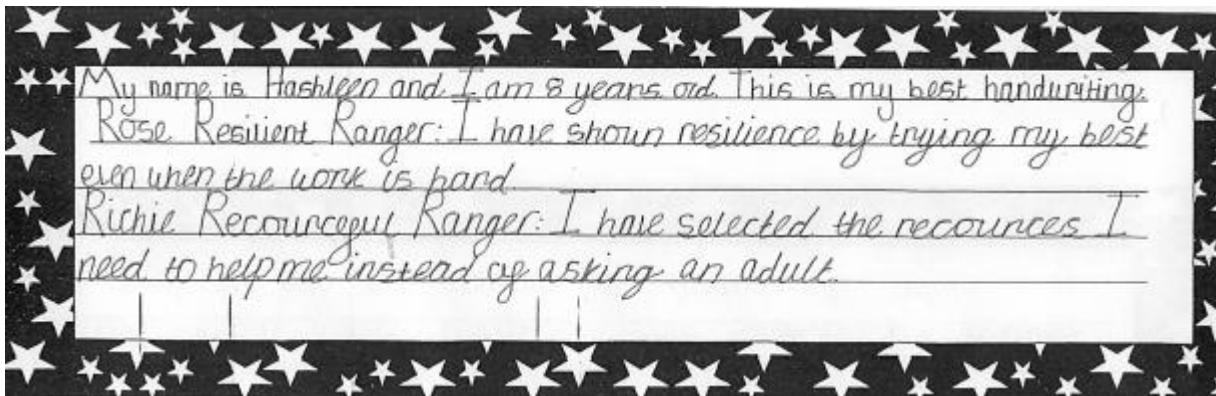 My name is Hashleen and I am 8 years old. This is my best handwriting.
Rose Resilient Ranger: I have shown resilience by trying my best
even when the work is hard.
Richie Recourceful Ranger: I have selected the recources I
need to help me instead of asking an adult.